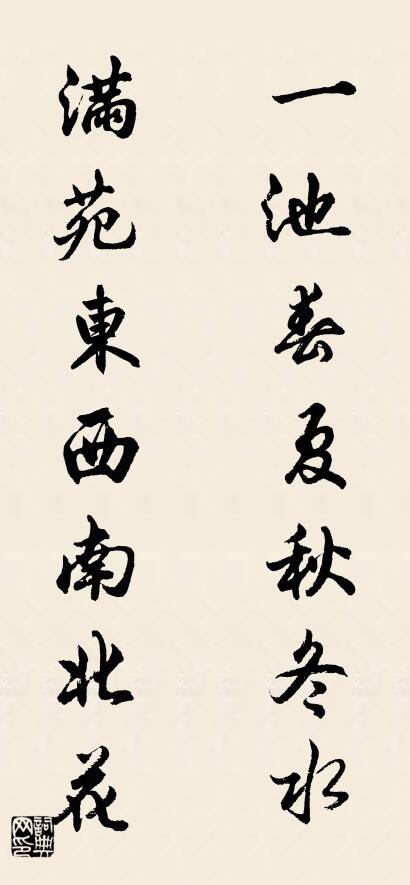 一池春夏秋冬水
滿苑東西南北花
詞典网印